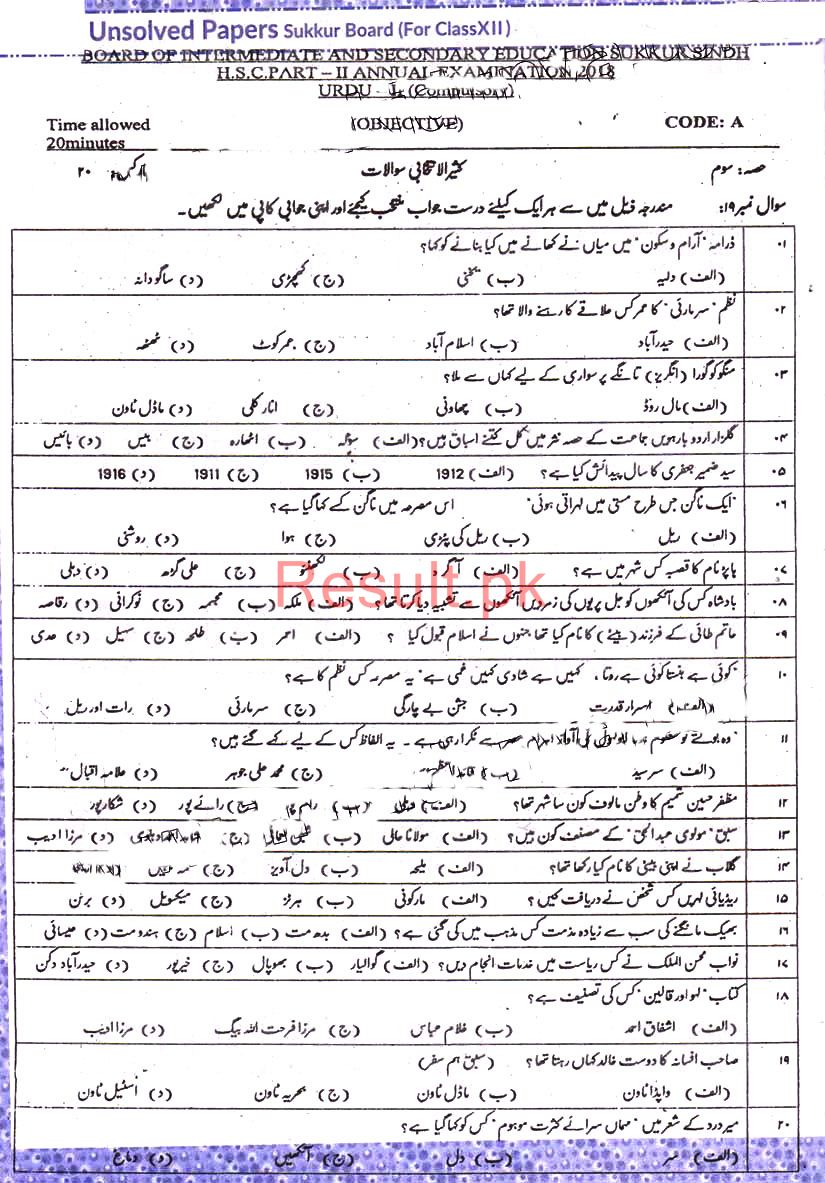 Unsolved Papers Sukkur Board (For ClassXII)
BOARD OF INTERMEDIATE AND SECONDARY EDUCATION SUKKUR SINDH
H.S.C.PART – II ANNUAL EXAMINATION 2018
URDU – (Compulsory)
Time allowed (OBJECTIVE) CODE: A
20minutes
حصہ: سوم کثیر الانتخابی سوالات مارکس ۲۰
سوال نمبر ۱۹: مندرجہ ذیل میں سے ہر ایک کیلئے درست جواب منتخب کیجئے اور اپنی جوابی کاپی میں لکھیں۔
۰۱ ڈرامہ "آرام و سکون" میں میاں نے کھانے میں کیا بنانے کو کہا؟
(الف) دلیہ (ب) یخنی (ج) کھچڑی (د) ساگودانہ
۰۲ نظم "سرمارئی" کا عمر کس علاقے کا رہنے والا تھا؟
(الف) حیدرآباد (ب) اسلام آباد (ج) عمرکوٹ (د) ٹھٹھہ
۰۳ منگو کو گورا (انگریز) تانگے پر سواری کے لیے کہاں سے ملا؟
(الف) مال روڈ (ب) چھاونی (ج) انارکلی (د) ماڈل ٹاون
۰۴ گلزار اردو بارہویں جماعت کے حصہ نثر میں کل کتنے اسباق ہیں؟ (الف) سولہ (ب) اٹھارہ (ج) بیس (د) بائیس
۰۵ سید ضمیر جعفری کا سال پیدائش کیا ہے؟ (الف) 1912 (ب) 1915 (ج) 1911 (د) 1916
۰۶ "ایک ناگن جس طرح مستی میں لہراتی ہوئی" اس مصرعہ میں ناگن کسے کہا گیا ہے؟
(الف) ریل (ب) ریل کی پٹڑی (ج) ہوا (د) روشنی
۰۷ ہاپڑ نام کا قصبہ کس شہر میں ہے؟ (الف) آگرہ (ب) لکھنؤ (ج) علی گڑھ (د) دہلی
Result.pk
۰۸ بادشاہ کس کی آنکھوں کو جل پریوں کی زمردیں آنکھوں سے تشبیہ دیا کرتا تھا؟ (الف) ملکہ (ب) مجسمہ (ج) نوکرانی (د) رقاصہ
۰۹ حاتم طائی کے فرزند (بیٹے) کا نام کیا تھا جنہوں نے اسلام قبول کیا؟ (الف) احمر (ب) طلحہ (ج) سہیل (د) عدی
۱۰ "کوئی ہے ہنستا کوئی ہے روتا، کہیں ہے شادی کہیں غمی ہے" یہ مصرعہ کس نظم کا ہے؟
(الف) اسرار قدرت (ب) جشن بے چارگی (ج) سرمارئی (د) رات اور ریل
۱۱ "وہ بولتے تو معلوم سے ٹکرا رہی ہے۔ یہ الفاظ کس کے لیے کہے گئے ہیں؟
(الف) سرسید (ب) (ج) محمد علی جوہر (د) علامہ اقبال
۱۲ مظفر حسین شمیم کا وطن مالوف کون سا شہر تھا؟ (الف) (ب) (ج) رائے پور (د) شکارپور
۱۳ سبق "مولوی عبدالحق" کے مصنف کون ہیں؟ (الف) مولانا حالی (ب) (ج) (د) مرزا ادیب
۱۴ گلاب نے اپنی بیٹی کا نام کیا رکھا تھا؟ (الف) ملیحہ (ب) دل آویز (ج)
۱۵ ریڈیائی لہریں کس شخص نے دریافت کیں؟ (الف) مارکونی (ب) ہرٹز (ج) میکسویل (د) برٹن
۱۶ بھیک مانگنے کی سب سے زیادہ مذمت کس مذہب میں کی گئی ہے؟ (الف) بدھ مت (ب) اسلام (ج) ہندومت (د) عیسائی
۱۷ نواب محسن الملک نے کس ریاست میں خدمات انجام دیں؟ (الف) گوالیار (ب) بھوپال (ج) خیرپور (د) حیدرآباد دکن
۱۸ کتاب "لہو اور قالین" کس کی تصنیف ہے؟
(الف) اشفاق احمد (ب) غلام عباس (ج) مرزا فرحت اللہ بیگ (د) مرزا ادیب
۱۹ صاحب افسانہ کا دوست خالد کہاں رہتا تھا؟ (سبق ہم سفر)
(الف) واپڈا ٹاون (ب) ماڈل ٹاون (ج) بحریہ ٹاون (د) اسٹیل ٹاون
۲۰ میر درد کے شعر میں "مہماں سرائے کثرت موہوم" کس کو کہا گیا ہے؟
(الف) سر (ب) دل (ج) آنکھیں (د) دماغ